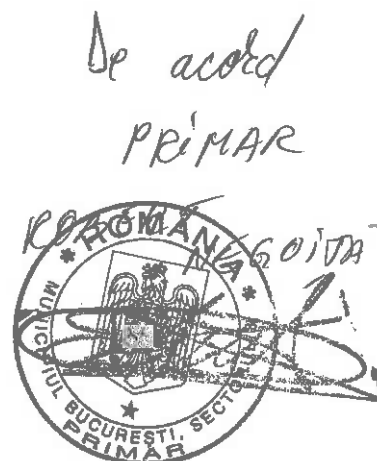 De acord
PRiMAR
NEGOiȚĂ
* ROMÂNIA *
MUNICIPIUL BUCUREȘTI, SECTO
PRIMAR